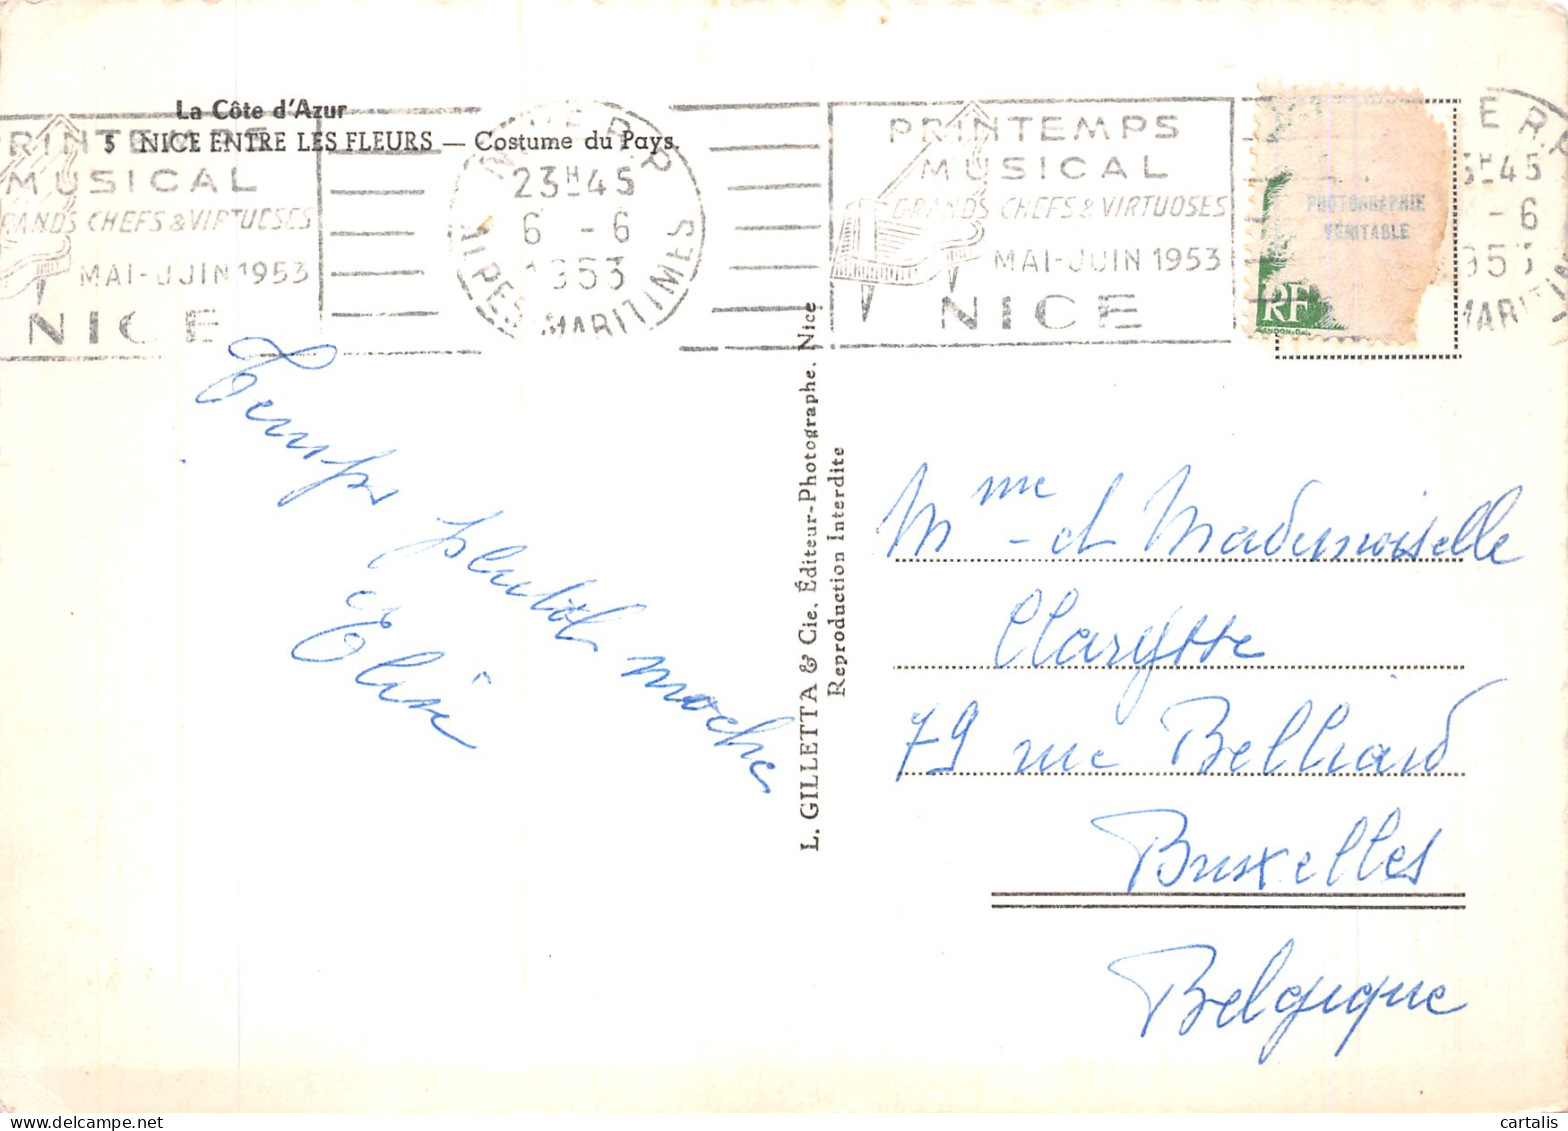 La Côte d'Azur
5 NICE ENTRE LES FLEURS — Costume du Pays.
PRINTEMPS
MUSICAL
GRANDS CHEFS & VIRTUOSES
MAI-JUIN 1953
NICE
NICE R.P
23H45
6 - 6
1953
ALPES MARITIMES
PRINTEMPS
MUSICAL
GRANDS CHEFS & VIRTUOSES
MAI-JUIN 1953
NICE
PHOTOGRAPHIE
VÉRITABLE
RF
E R.P
3H45
- 6
953
MARITIM
Temps plutôt moche
Elise
L. GILLETTA & Cie, Éditeur-Photographe, Nice
Reproduction Interdite
Mme et Mademoiselle
79 rue Belliard
Bruxelles
Belgique
cartalis